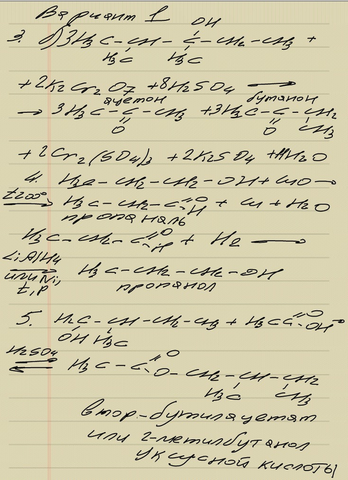 Вариант 1
OH
3. б) 3H3C – CH – C – CH2 – CH3 +
H3C H3C
+2K2Cr2O7 + 8H2SO4 →
ацетон бутанон
→ 3H3C – C – CH3 + 3H3C – C – CH2
O O CH3
+ 2Cr2(SO4)3 + 2K2SO4 + 11H2O
4. H3C – CH2 – CH2 – OH + CuO →
t200° H3C – CH2 – C =O H + Cu + H2O
пропаналь
H3C – CH2 – C =O H + H2 →
LiAlH4
или Ni, H3C – CH2 – CH2 – OH
t, p пропанол
5. H2C – CH – CH2 – CH3 + H3C C =O OH
OH H3C
H2SO4 ⇄ H3C – C =O O – CH2 – CH – CH2
H3C CH3
втор-бутилацетат
или 2-метилбутанол
уксусной кислоты